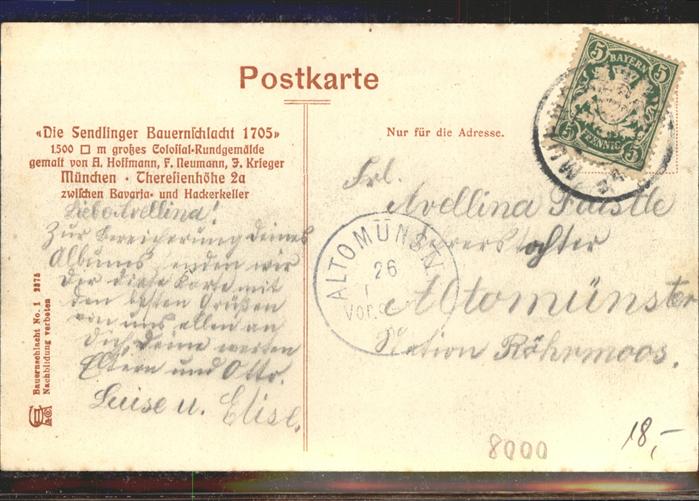 Postkarte
«Die Sendlinger Bauernschlacht 1705»
1500 □ m großes Colossal-Rundgemälde
gemalt von A. Hoffmann, F. Neumann, J. Krieger
München · Theresienhöhe 2a
zwischen Bavaria- und Hackerkeller
Liebe Avellina!
Zur Bereicherung deines
Albums senden wir
Dir diese Karte mit
den besten Grüßen
von uns allen an
Dich, deine werten
Eltern und Otto.
Luise u. Elise.
Bauernschlacht No. 1 2375
Nachbildung verboten
Nur für die Adresse.
5 BAYERN 5
5 PFENNIG 5
Frl.
Avellina
Lehrerstochter
Altomünster
Station Röhrmoos.
ALTOMÜNSTER
26
Vor.
8000
18,-